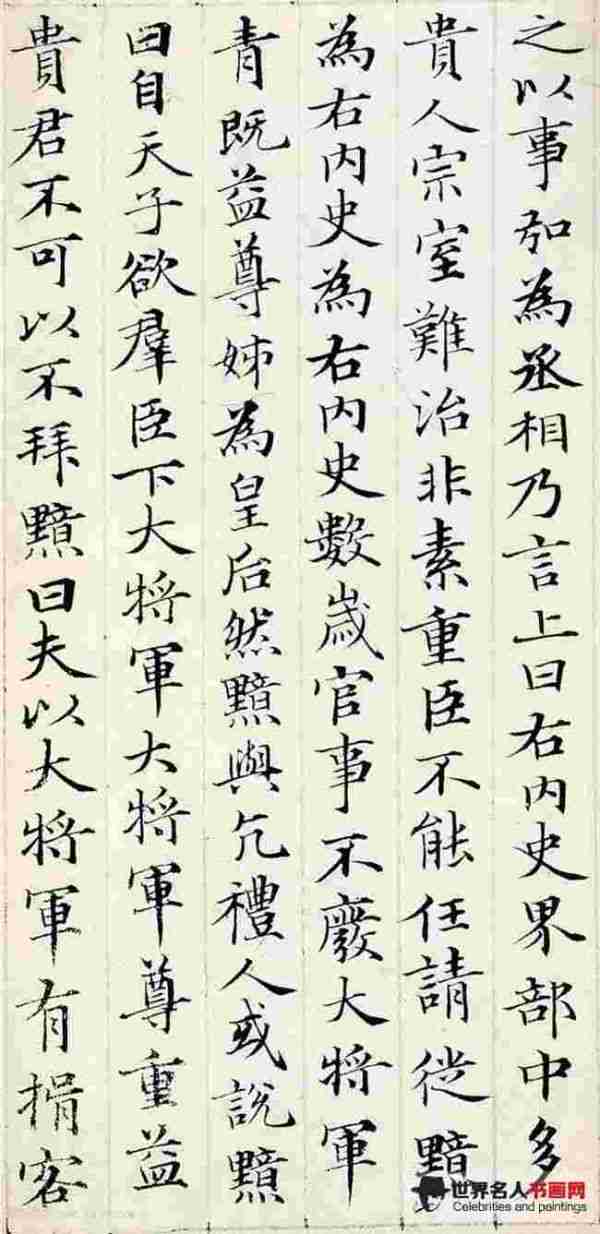 之以事弘為丞相乃言上曰右内史界部中多
貴人宗室難治非素重臣不能任請徙黯
為右内史為右内史數歲官事不廢大将軍
青既益尊姊為皇后然黯與亢禮人或說黯
曰自天子欲羣臣下大将軍大将軍尊重益
貴君不可以不拜黯曰夫以大将軍有揖客
世界名人书画网
Celebrities and paintings